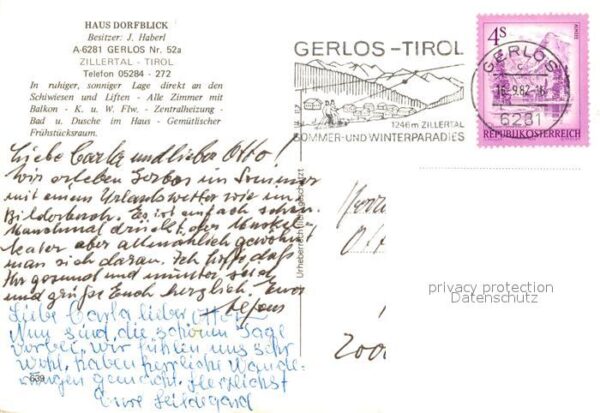 HAUS DORFBLICK
Besitzer: J. Haberl
A-6281 GERLOS Nr. 52a
ZILLERTAL - TIROL
Telefon 05284 - 272
In ruhiger, sonniger Lage direkt an den
Schiwiesen und Liften - Alle Zimmer mit
Balkon - K. u. W. Flw. - Zentralheizung -
Bad u. Dusche im Haus - Gemütlischer
Frühstücksraum.
GERLOS-TIROL
1246m ZILLERTAL
SOMMER-UND WINTERPARADIES
GERLOS
9.82-16
6281
4S
REPUBLIK ÖSTERREICH
Liebe Carla und lieber Otto!
Wir erleben Gerlos im Sommer
mit einem Urlaubswetter wie im
Bilderbuch. Es ist einfach schön.
Manchmal drückt der Muskel-
kater aber allmählich gewöhnt
man sich daran. Ich hoffe, daß
Ihr gesund und munter seid
und grüße Euch herzlich Euer
Liebe Carla lieber Otto!
Nun sind die schönen Tage
vorbei, wir fühlen uns sehr
wohl, haben herrliche Wande-
rungen gemacht. Herzlichst
Eure Hildegard
Urheberrechtlich geschützt
privacy protection
Datenschutz